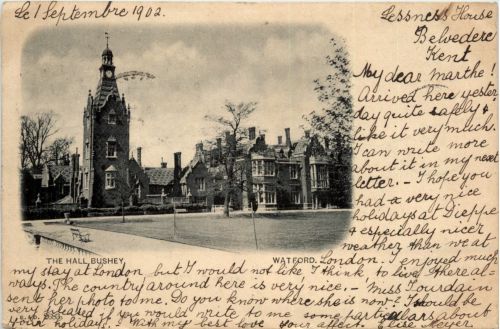 Le 1 Septembre 1902.
Lessness House
Belvedere
Kent
My dear Marthe!
Arrived here yester
day quite safely &
like it very much.
I can write more
about it in my next
letter. - I hope you
had a very nice
holidays at Dieppe
& especially nicer
weather than we at
London. I enjoyed much
THE HALL, BUSHEY, WATFORD.
my stay at London but I would not like I think to live there al-
ways. The country around here is very nice. - Miss Tourdain
sent her photo to me. Do you know where she is now? I would be
very pleased if you would write to me some particulars about
your holiday. With my best love your affect. Elise